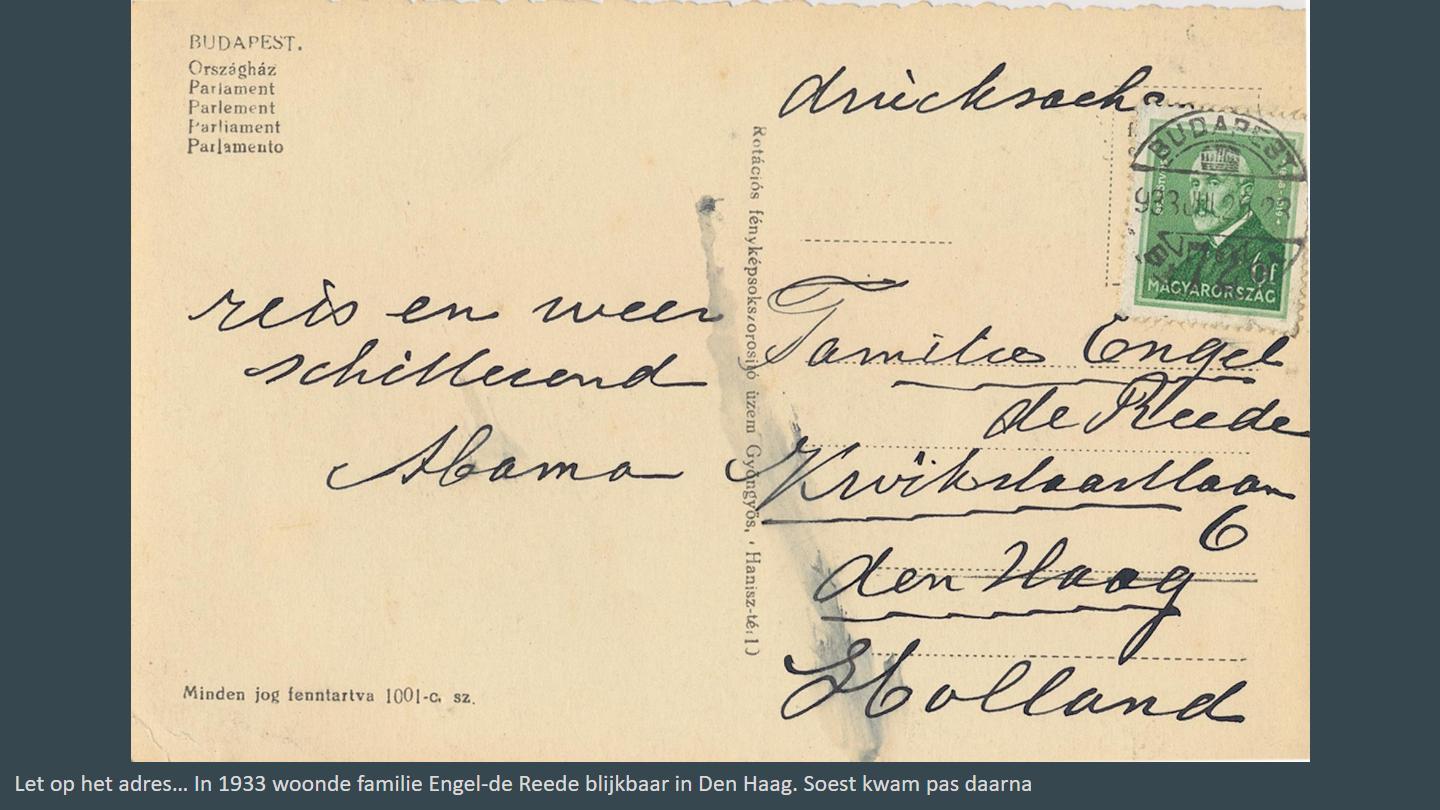 BUDAPEST.
Országház
Parlament
Parlement
Parliament
Parlamento
drucksache
BUDAPEST
MAGYARORSZÁG
Rotációs fényképsokszorositó üzem Gyöngyös, Hanisz-tér 1)
reis en weer
schitterend
Mama
Familie Engel
de Reede
6
den Haag
Holland
Minden jog fenntartva 1001-c. sz.
Let op het adres... In 1933 woonde familie Engel-de Reede blijkbaar in Den Haag. Soest kwam pas daarna